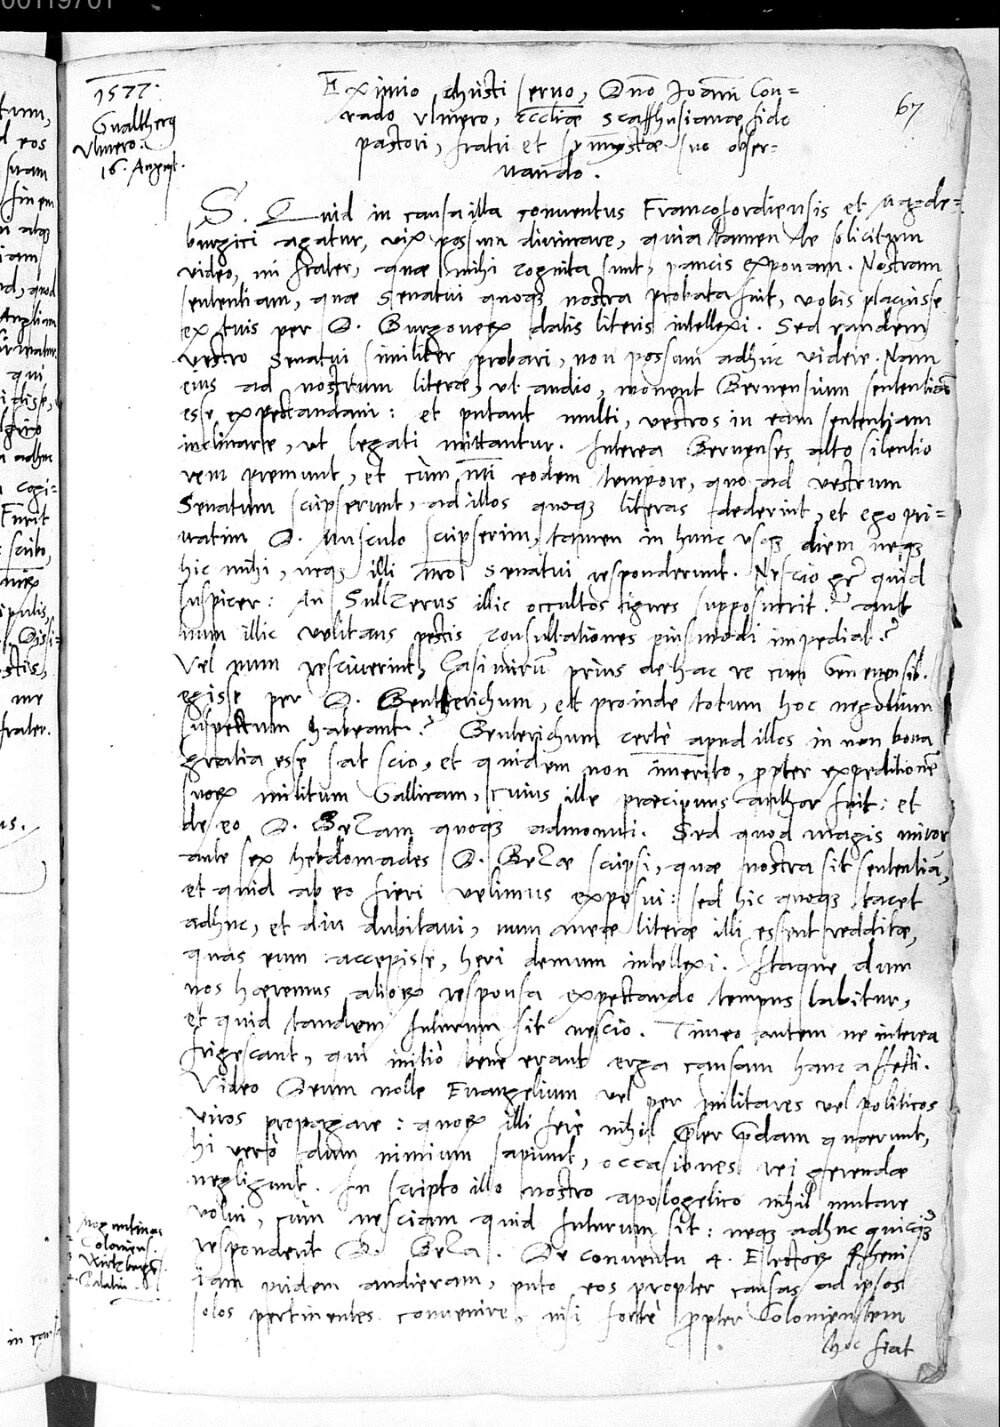 00119701
1577.
Gualtherus
Ulmero.
16. August.
67
Eximio Christi servo, Dno Joanni Con=
rado Ulmero, ecclesiæ Scaffhusianæ fido
pastori, fratri et symmystæ suo obser-
uando.
S. Quid in causa illa conuentus Francofordiensis et Magde=
burgici agatur, vix possum diuinare, quia tamen te solicitum
video, mi frater, quæ mihi cognita sunt, paucis exponam. Nostram
sententiam, quæ Senatui quoqz nostro probata fuit, vobis placuisse
ex tuis per D. Burgouerum datis literis intellexi. Sed eandem
vestro Senatui similiter probari, non possum adhuc videre. Nam
eius ad nostrum literæ, ut audio, monent Bernensium sententiam
esse expectandam: et putant multi, vestros in eam sententiam
inclinare, ut legati mittantur. Interea Bernenses alto silentio
rem premunt, et cùm nri eodem tempore, quo ad vestrum
Senatum scripserunt, ad illos quoqz literas dederint, et ego pri=
uatim D. Musculo scripserim, tamen in hunc usqz diem neqz
hic mihi, neqz illi nro Senatui responderunt. Nescio gr quid
suspicer: An Sullzerus illic occultos ignes supposuerit? aut
num illic volitans pestis consultationes eiusmodi impediat?
Vel num resciuerint Casimirū prius de hac re cum Geneuensib.
egisse per D. Beutterichum, et proinde totum hoc negotium
suspectum habeant? Beuterichum certè apud illos in non bona
gratia esse sat scio, et quidem non immerito, ppter expeditionē
suorū militum Gallicam, cuius ille præcipuus author fuit: et
de eo D. Bezam quoqz admonui. Sed quod magis miror
ante sex hebdomades D. Bezæ scripsi, quæ nostra sit sententia,
et quid ab eo fieri velimus exposui: sed hic quoqz tacet
adhuc, et diu dubitaui, num meæ literæ illi essent redditæ,
quas eum accepisse, heri demum intellexi. Itaque dum
nos hæremus aliorū responsa expectando tempus labitur,
et quid tandem futurum sit nescio. Timeo autem ne interea
frigescant, qui initiò bene erant erga causam hanc affecti.
Video Deum nolle Euangelium vel per militares vel politicos
viros propagare: quorū illi ferè nihil pter prædam quærunt,
hi verò dum nimium sapiunt, occasiones rei gerendæ
negligunt. In scripto illo nostro apologetico nihil mutare
volui, cùm nesciam quid futurum sit: neqz adhuc quicq
respondent D. Beza. De conuentu 4. Elector Rheni
iam pridem audieram, puto eos propter causas ad ipsos
solos pertinentes conuenire, nisi fortè ppter Coloniensem
hoc fiat
Moguntinus
Coloniens.